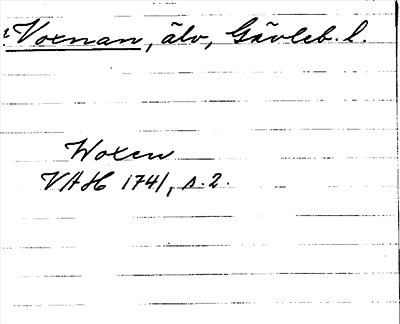 Voxnan, älv, Gävleb. l.
Woxen
VAH 1741, s. 2.